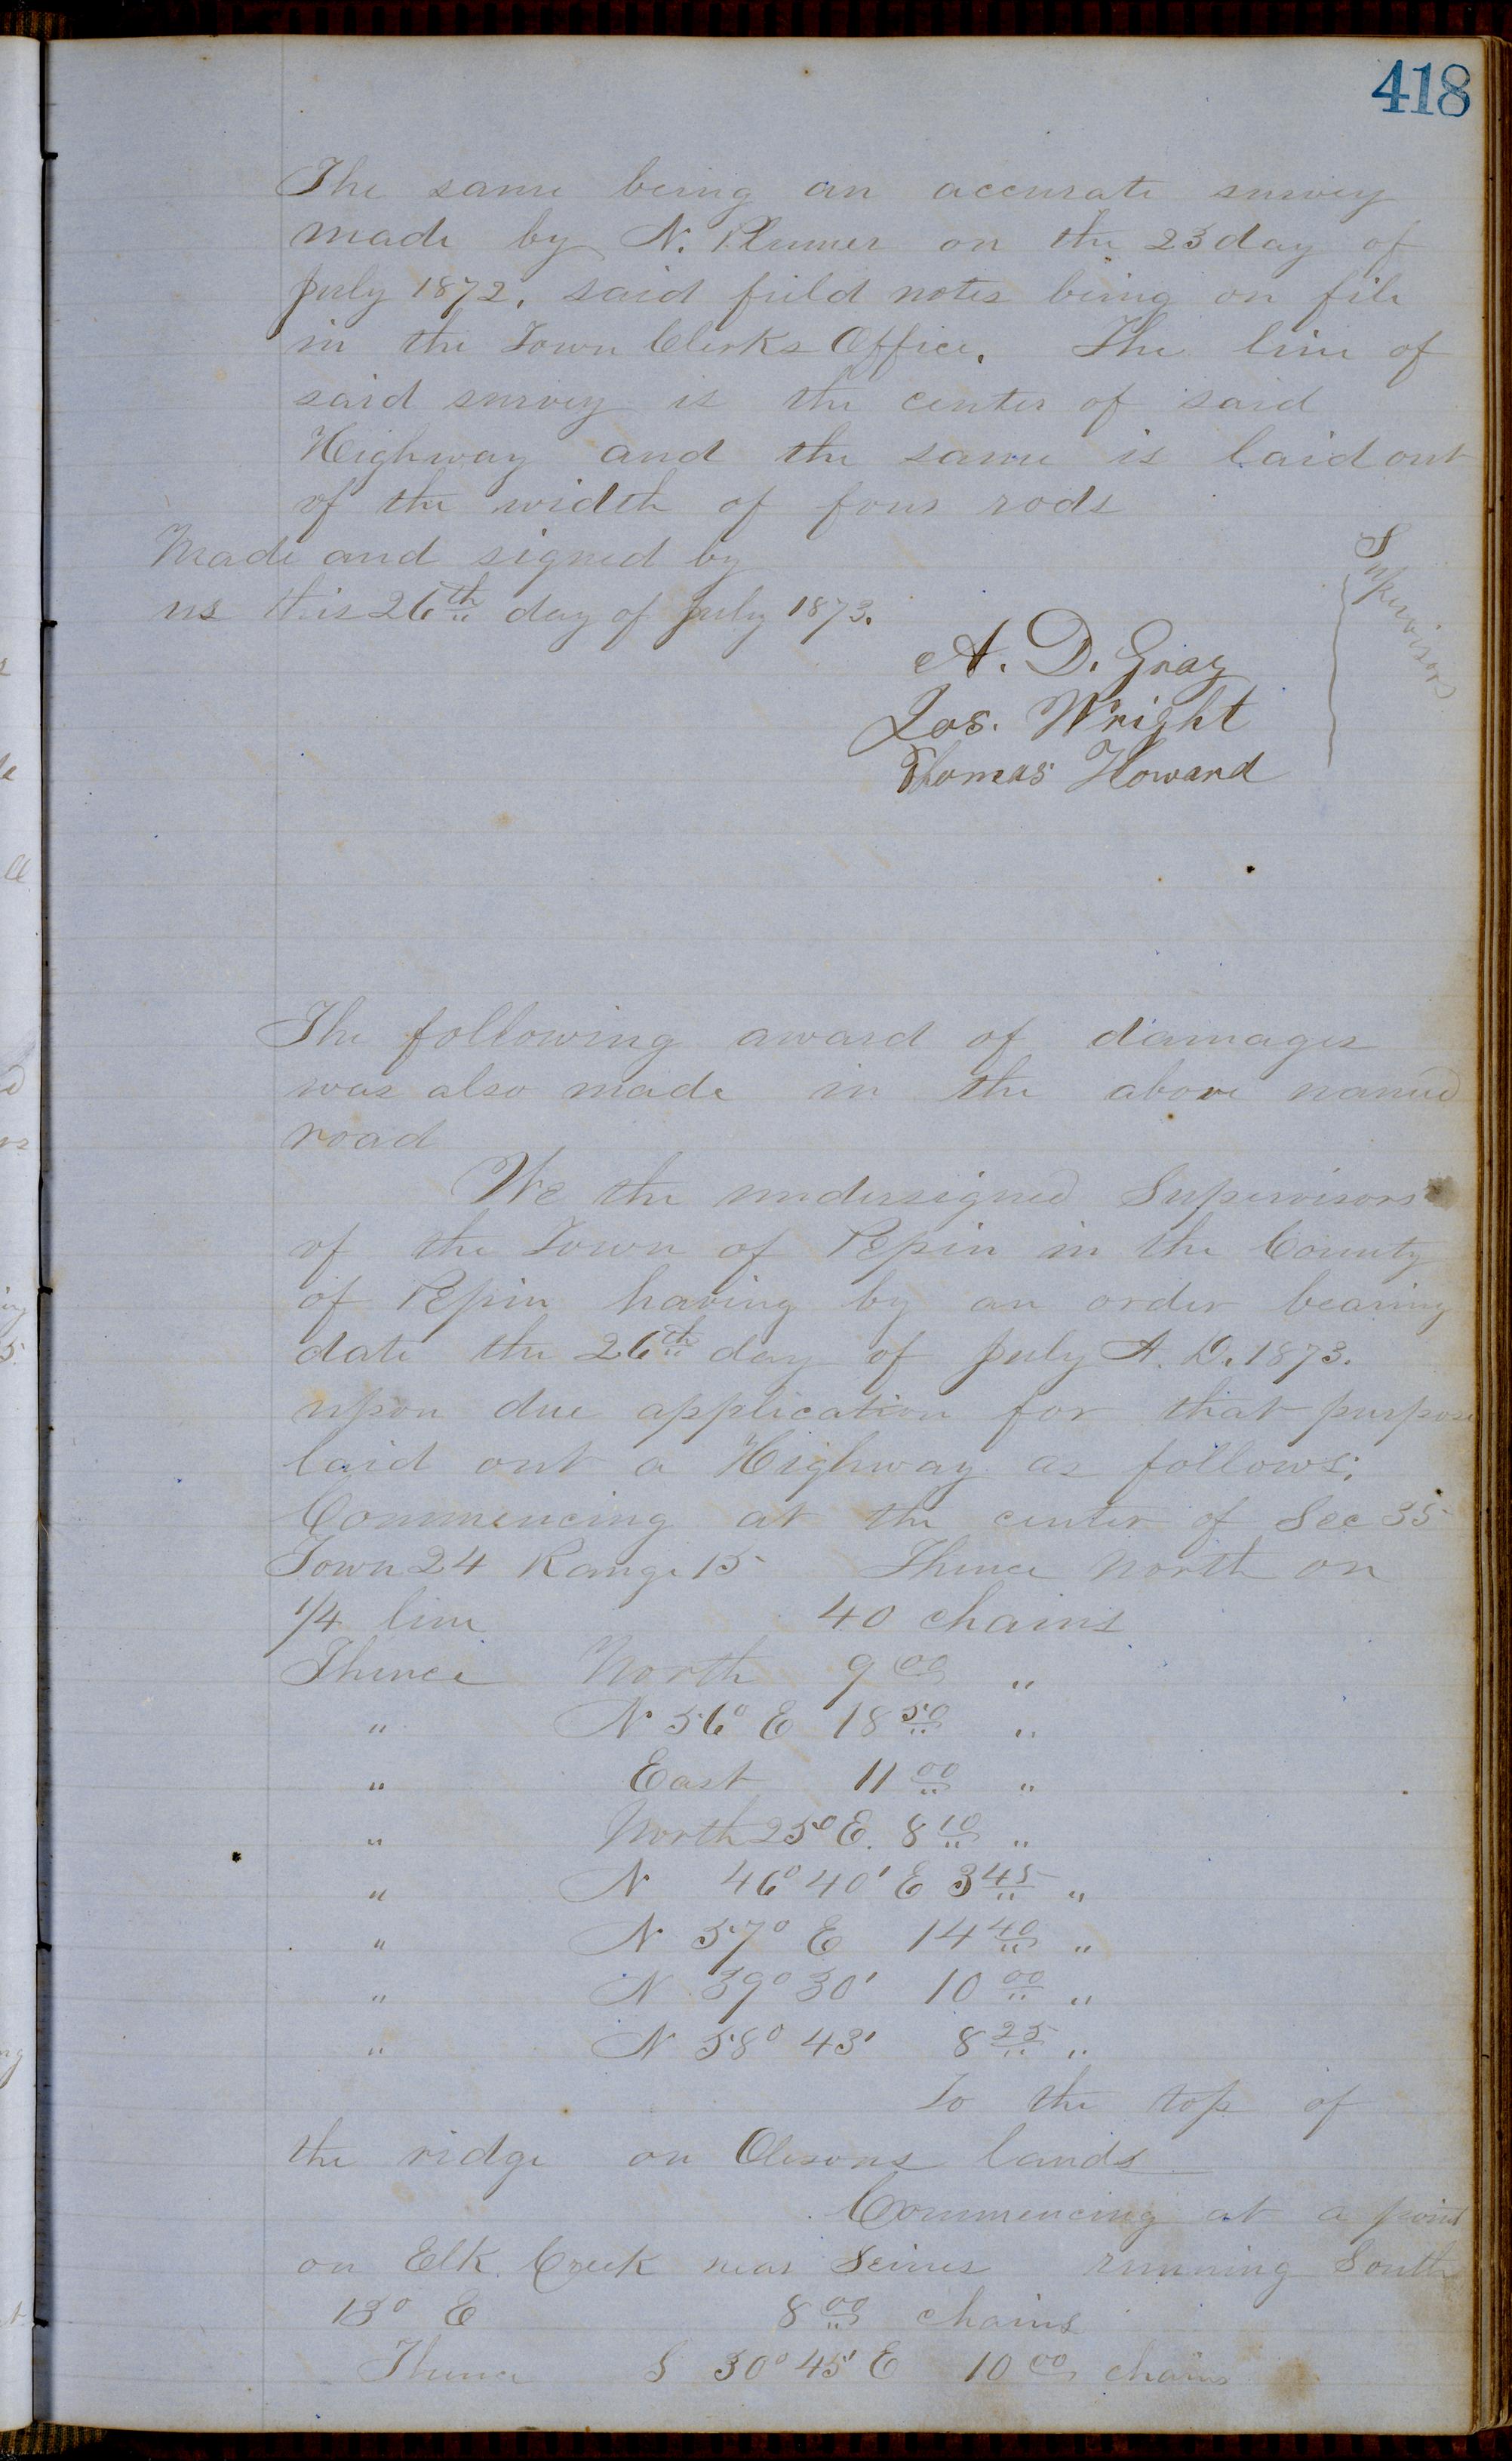 418
The same being an accurate survey
made by N. Plumer on the 23 day of
July 1872, said field notes being on file
in the Town Clerks Office. The line of
said survey is the center of said
Highway and the same is laid out
of the width of four rods
Made and signed by
us this 26th day of July 1873.
A. D. Gray
Jos. Wright
Thomas Howard
Supervisors
The following award of damages
was also made in the above named
road
We the undersigned Supervisors
of the Town of Pepin in the County
of Pepin having by an order bearing
date the 26th day of July A. D. 1873.
upon due application for that purpose
laid out a Highway as follows;
Commencing at the center of Sec 35
Town 24 Range 15 Thence North on
1/4 line 40 chains
Thence North 9 00 "
" N 56° E 18 50 "
" East 11 00 "
" North 25° E. 8 10 "
" N 46° 40' E 3 45 "
" N 57° E 14 40 "
" N 39° 30' 10 00 "
" N 58° 43' 8 25 "
To the top of
the ridge on Olesons lands
Commencing at a point
on Elk Creek near running South
13° E 8 00 chains
Thence S 30° 45' E 10 00 chains